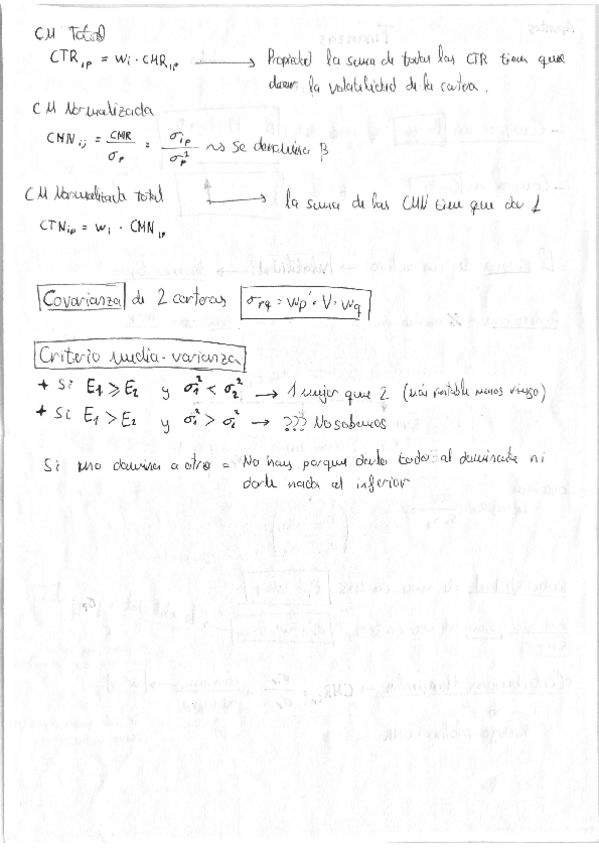 CM Total
CTR ip = wi · CMR ip → Propiedad la suma de todas las CTR tiene que
darnos la volatilidad de la cartera.
CM Normalizada
CMN ij = CMR / σp = σip / σp² ~> Se denomina β
CM Normalizada total → la suma de las CMN tiene que dar 1
CTN ip = wi · CMN ip
Covarianza de 2 carteras σpq = wp' · V · wq
Criterio media-varianza
+ Si E1 ≥ E2 y σ1² < σ2² → 1 mejor que 2 (más rentable menos riesgo)
+ Si E1 > E2 y σ1² > σ2² → ??? No sabemos
Si uno domina a otro = No hay porque darle todo al dominante ni
darle nada al inferior